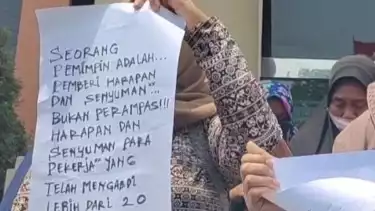 SEORANG
PEMIMPIN ADALAH...
PEMBERI HARAPAN
DAN SENYUMAN"...
BUKAN PERAMPAS!!!
HARAPAN DAN
SENYUMAN PARA
PEKERJA" YANG
TELAH MENGABDI
LEBIH DARI 20